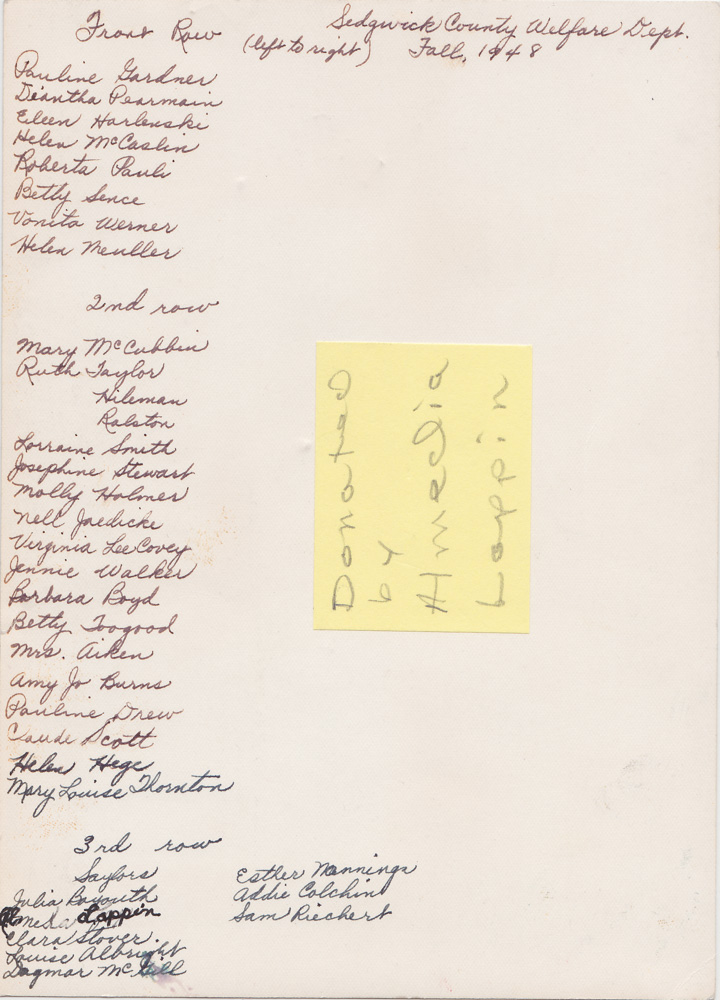 Front Row
(left to right)
Sedgwick County Welfare Dept.
Fall, 1948
Pauline Gardner
Diantha Pearmain
Eileen Harlenski
Helen McCaslin
Roberta Pauli
Betty Sence
Vonita Werner
Helen Meuller
2nd row
Mary McCubbin
Ruth Taylor
Hileman
Ralston
Lorraine Smith
Josephine Stewart
Molly Holmer
Nell Jaedicke
Virginia Lee Covey
Jennie Walker
Barbara Boyd
Betty Toogood
Mrs. Aiken
Amy Jo Burns
Pauline Drew
Claude Scott
Helen Hege
Mary Louise Thornton
3rd row
Saylors
Julia Bayouth
Lappin
Clara Stover
Louise Albright
Dagmar McGill
Esther Manninga
Addie Colchin
Sam Riechert
Donated
by
Amelia
Lappin